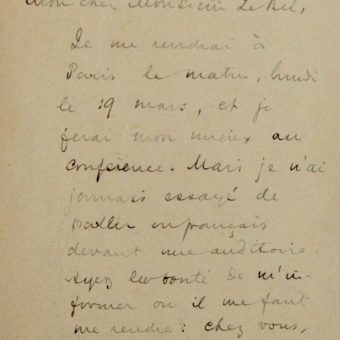 Mon cher Monsieur Le Bel,
Je me rendrai à
Paris le matin, lundi
le 19 mars, et je
ferai mon mieux au
conférence. Mais je n'ai
jamais essayé de
parler en français
devant une auditoire.
Ayez la bonté de m'in-
former ou il me faut
me rendre: chez vous,